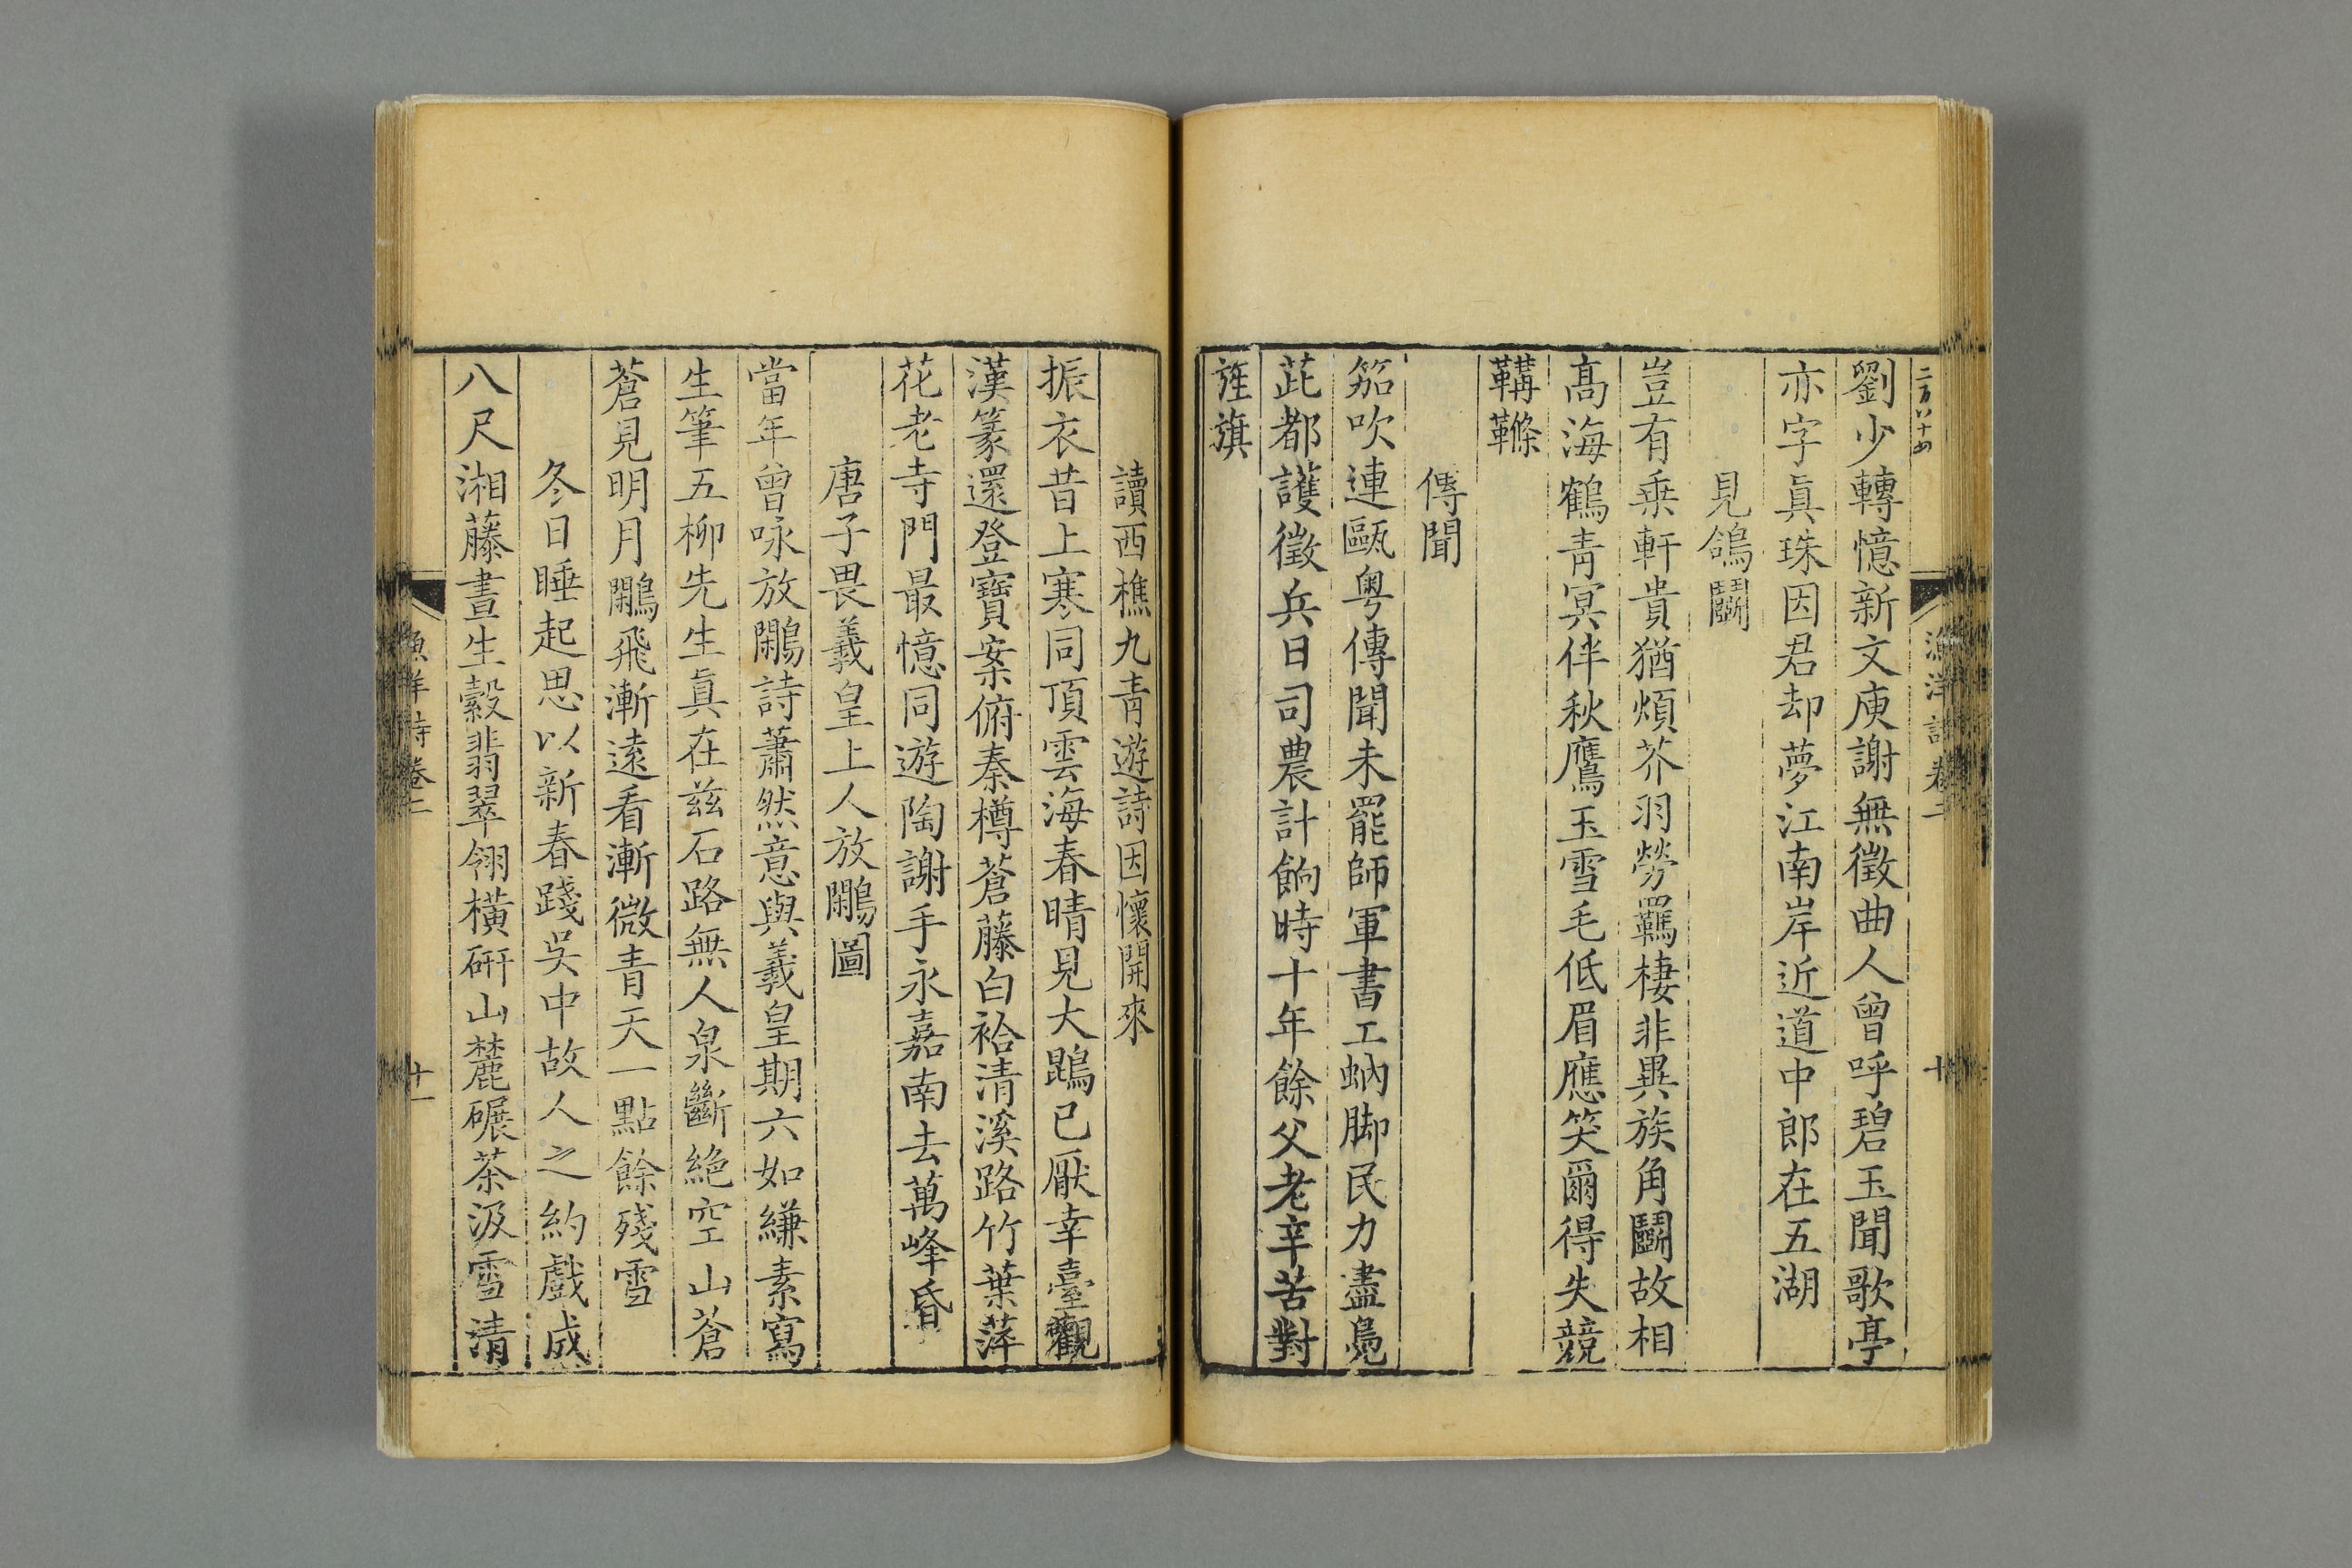 劉少轉憶新文庾謝無徵曲人曾呼碧玉聞歌亭
亦字眞珠因君却夢江南岸近道中郎在五湖
見鴿鬭
豈有乗軒貴猶煩芥羽勞羈棲非異族角鬭故相
高海鶴青冥伴秋鷹玉雪毛低眉應笑爾得失競
鞲鞗
傳聞
笳吹連甌粤傳聞未罷師軍書工蚋脚民力盡鳧
茈都護徵兵日司農計餉時十年餘父老辛苦對
旌旗
漁洋詩卷二
十
讀西樵九青遊詩因懷開來
振衣昔上寒同頂雲海春晴見大鵾已厭幸臺觀
漢篆還登寶案俯秦樽蒼藤白袷清溪路竹葉萍
花老寺門最憶同遊陶謝手永嘉南去萬峰昏
唐子畏羲皇上人放鷴圖
當年曾咏放鷴詩蕭然意與羲皇期六如縑素寫
生筆五柳先生眞在兹石路無人泉斷絶空山蒼
蒼見明月鷴飛漸遠看漸微青天一點餘殘雪
冬日睡起思以新春踐吳中故人之約戲成
八尺湘藤晝生縠翡翠翎横研山麓碾茶汲雪清
漁洋詩卷二
十一